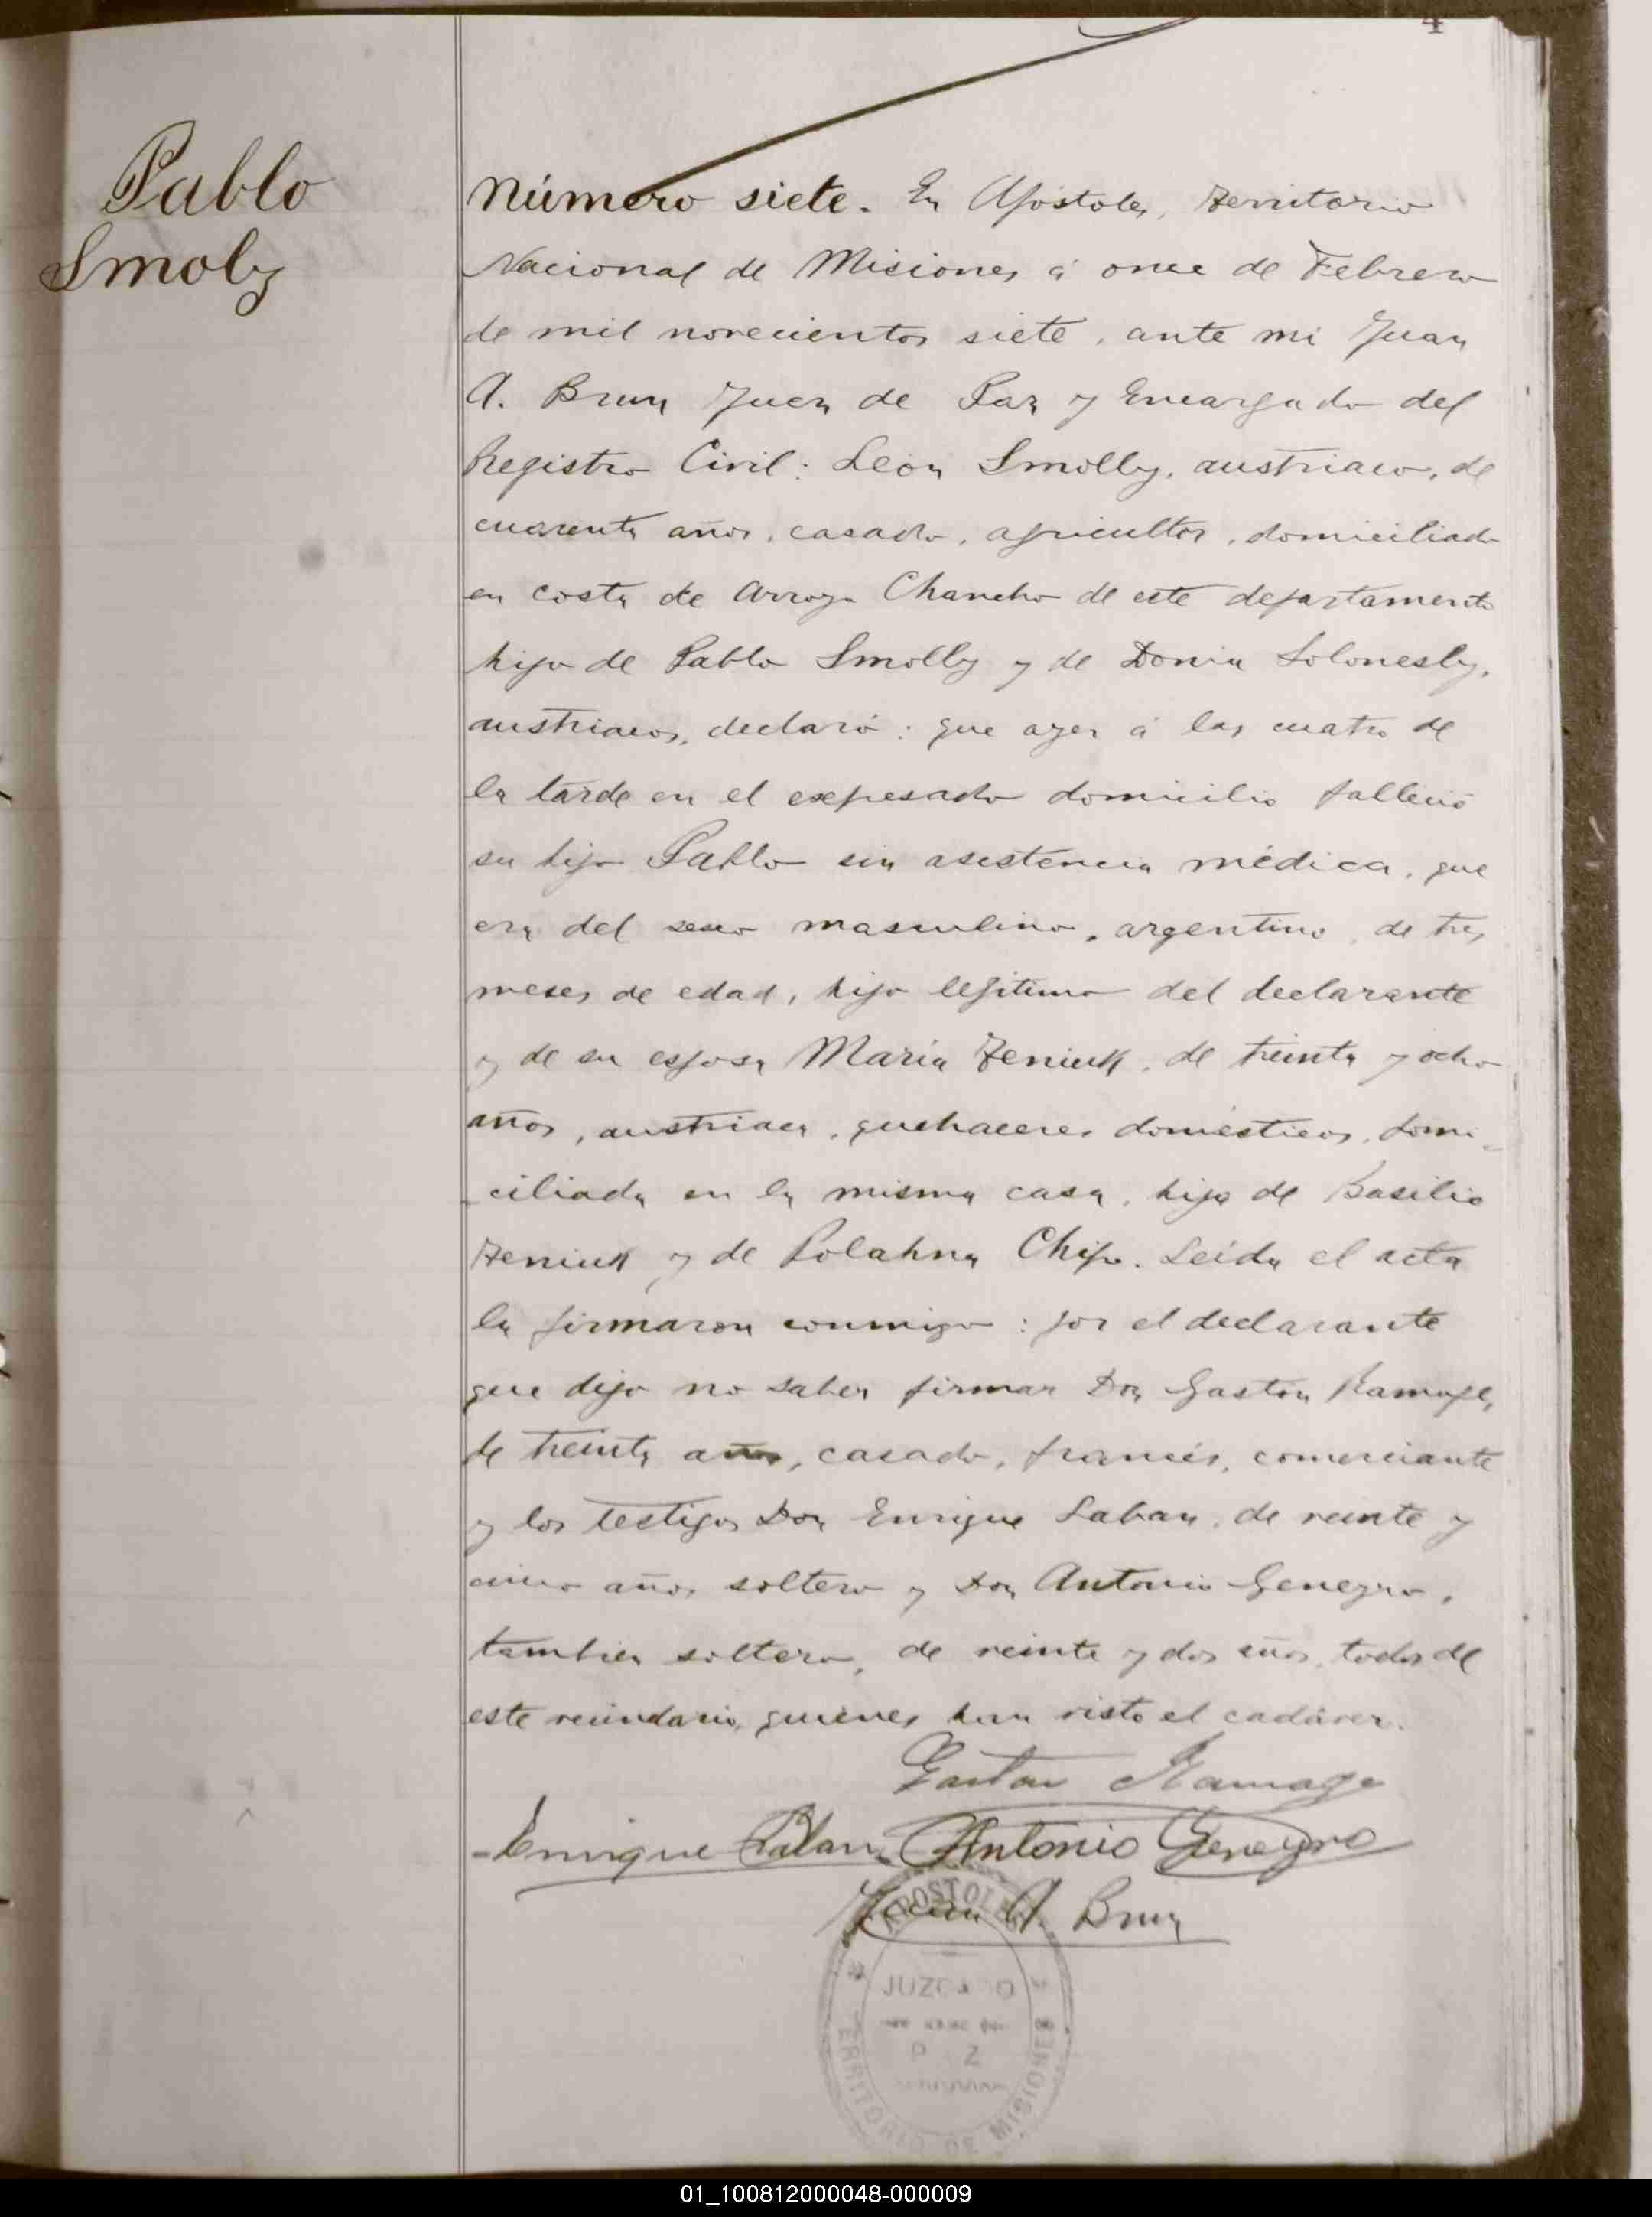 4
Pablo
Smoly
Número siete. En Apóstoles, Territorio
Nacional de Misiones á once de Febrero
de mil novecientos siete, ante mi Juan
A. Brun Juez de Paz y Encargado del
Registro Civil: León Smolly, austriaco, de
cuarenta años, casado, agricultor, domiciliado
en costa de Arroyo Chancho de este departamento
hijo de Pablo Smolly y de Donia Solonesly,
austriacos, declaró: que ayer á las cuatro de
la tarde en el expresado domicilio falleció
su hijo Pablo sin asistencia médica, que
era del sexo masculino, argentino, de tres
meses de edad, hijo legítimo del declarante
y de su esposa María Zeniuk, de treinta y ocho
años, austriaca, quehaceres domésticos, domi-
-ciliada en la misma casa, hija de Basilio
Zeniuk y de Polahna Chipo. Leída el acta
la firmaron conmigo: por el declarante
que dijo no saber firmar Don Gaston Ramage,
de treinta años, casado, francés, comerciante
y los testigos Don Enrique Laban, de veinte y
cinco años soltero y Don Antonio Geneyro,
tambien soltero, de veinte y dos años, todos de
este vecindario, quienes han visto el cadáver.
Gaston Ramage
Enrique Antonio Geneyro
Juan A. Brun
APOSTOLES
JUZGADO
P Z
TERRITORIO DE MISIONES
01_100812000048-000009